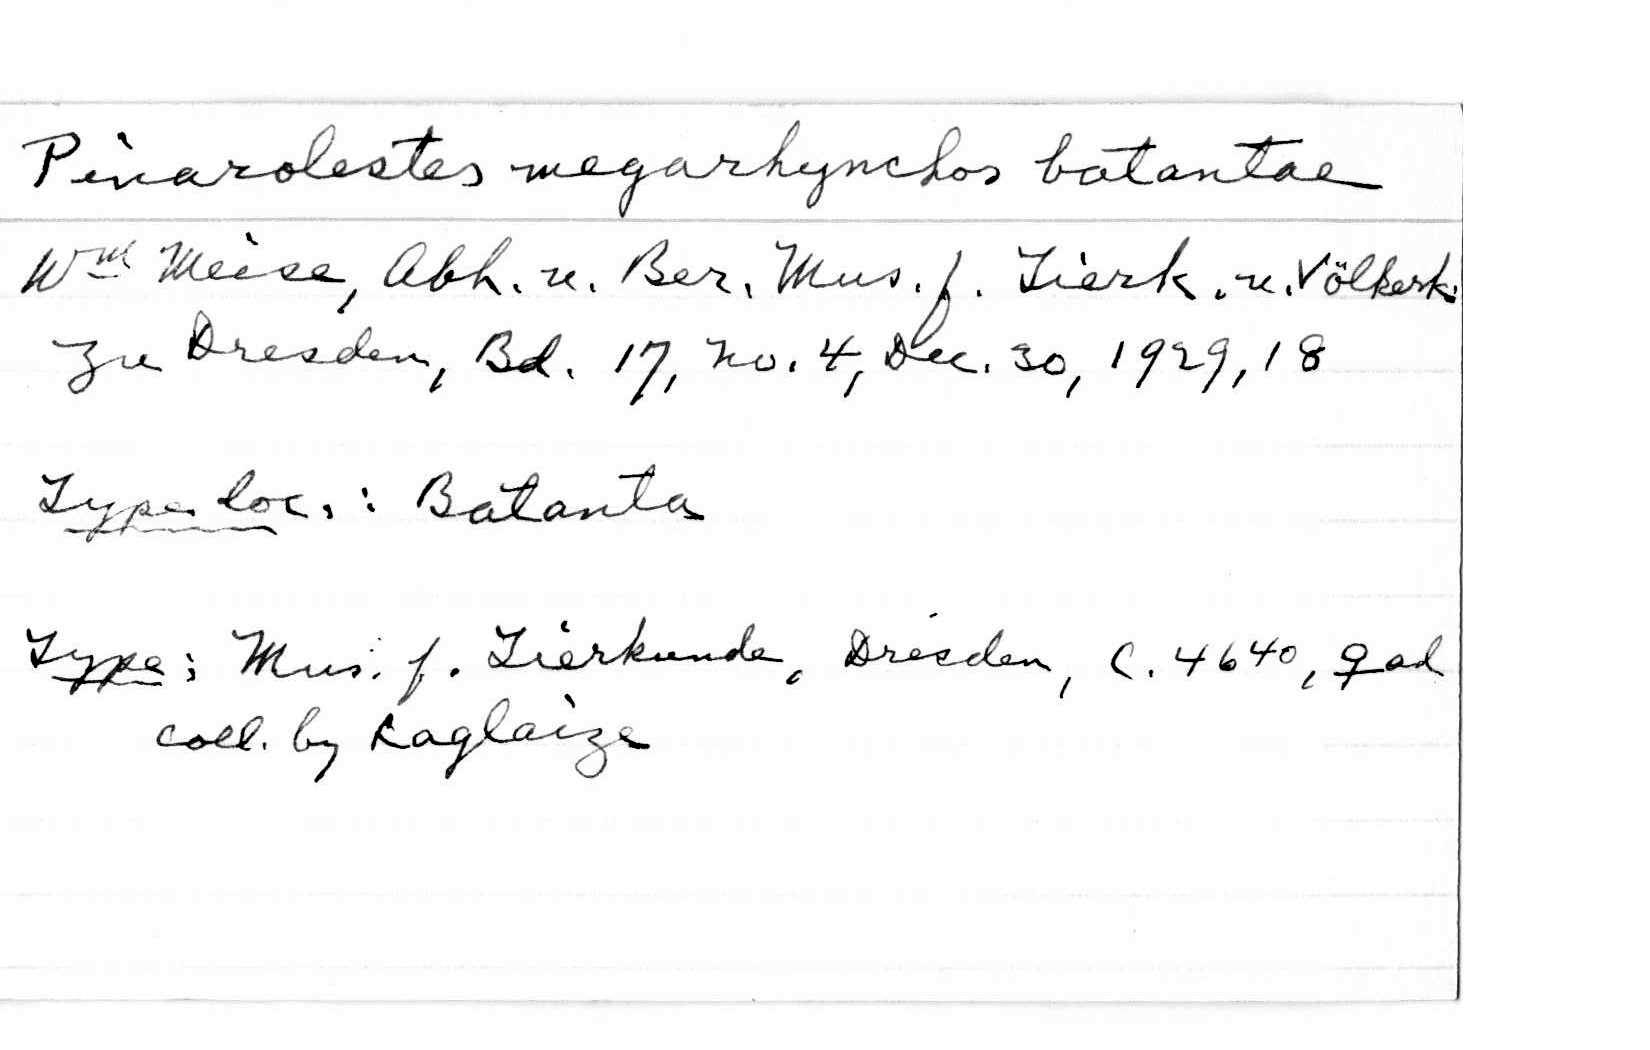 Pinarolestes megarhynchos batantae
Wm Meise, Abh. u. Ber. Mus. f. Tierk. u. Völkerk.
zu Dresden, Bd. 17, no. 4, Dec. 30, 1929, 18
Type loc.: Batanta
Type: Mus. f. Tierkunde, Dresden, C. 4640, ♀ ad
coll. by Raglaize